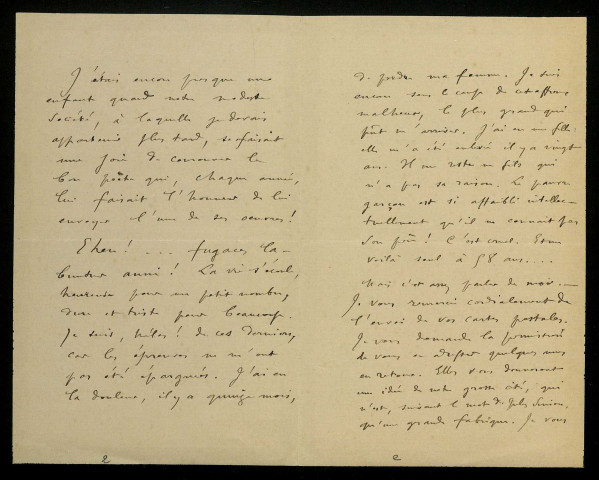 J'étais encore presque une
enfant quand notre modeste
Société, à laquelle je devais
appartenir plus tard, se faisait
une joie de couronner le
bon poète qui, chaque année,
lui faisait l'honneur de lui
envoyer l'une de ses oeuvres!
Eheu! ... fugaces la-
buntur anni! La vie s'écoule,
heureuse pour un petit nombre,
dure et triste pour beaucoup.
Je suis, hélas! de ces derniers,
car les épreuves ne m'ont
pas été épargnées. J'ai eu
la douleur, il y a quinze mois,
2
de perdre ma femme. Je suis
encore sous le coup de cet affreux
malheur, le plus grand qui
pût m'arriver. J'ai eu une fille:
elle m'a été enlevée il y a vingt
ans. Il me reste un fils qui
n'a pas sa raison. Le pauvre
garçon est si affaibli intellec-
tuellement qu'il ne connaît pas
son père! C'est cruel. Et me
voilà seul à 58 ans....
Mais c'est assez parler de moi....
Je vous remercie cordialement de
l'envoi de vos cartes postales.
Je vous demande la permission
de vous en adresser quelques unes
en retour. Elles vous donneront
une idée de notre grosse cité, qui
n'est, suivant le mot de Jules Simon,
qu'une grande fabrique. Je vous
2